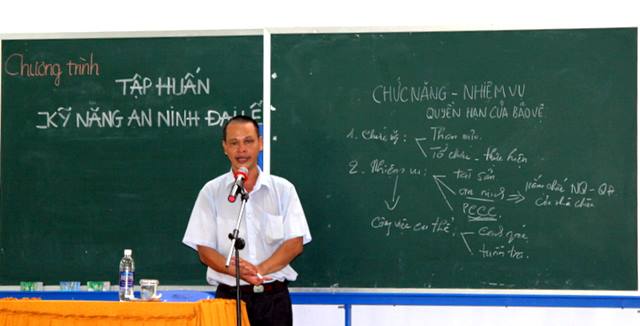 Chương trình
TẬP HUẤN
KỸ NĂNG AN NINH ĐẠI LỄ
CHỨC NĂNG - NHIỆM VỤ
QUYỀN HẠN CỦA BẢO VỆ
1. Chức năng:
Tham mưu.
Tổ chức - thực hiện
2. Nhiệm vụ:
tài sản
an ninh
PCCC
NQ - QĐ
của nhà chùa
Công việc cụ thể:
tuần tra.